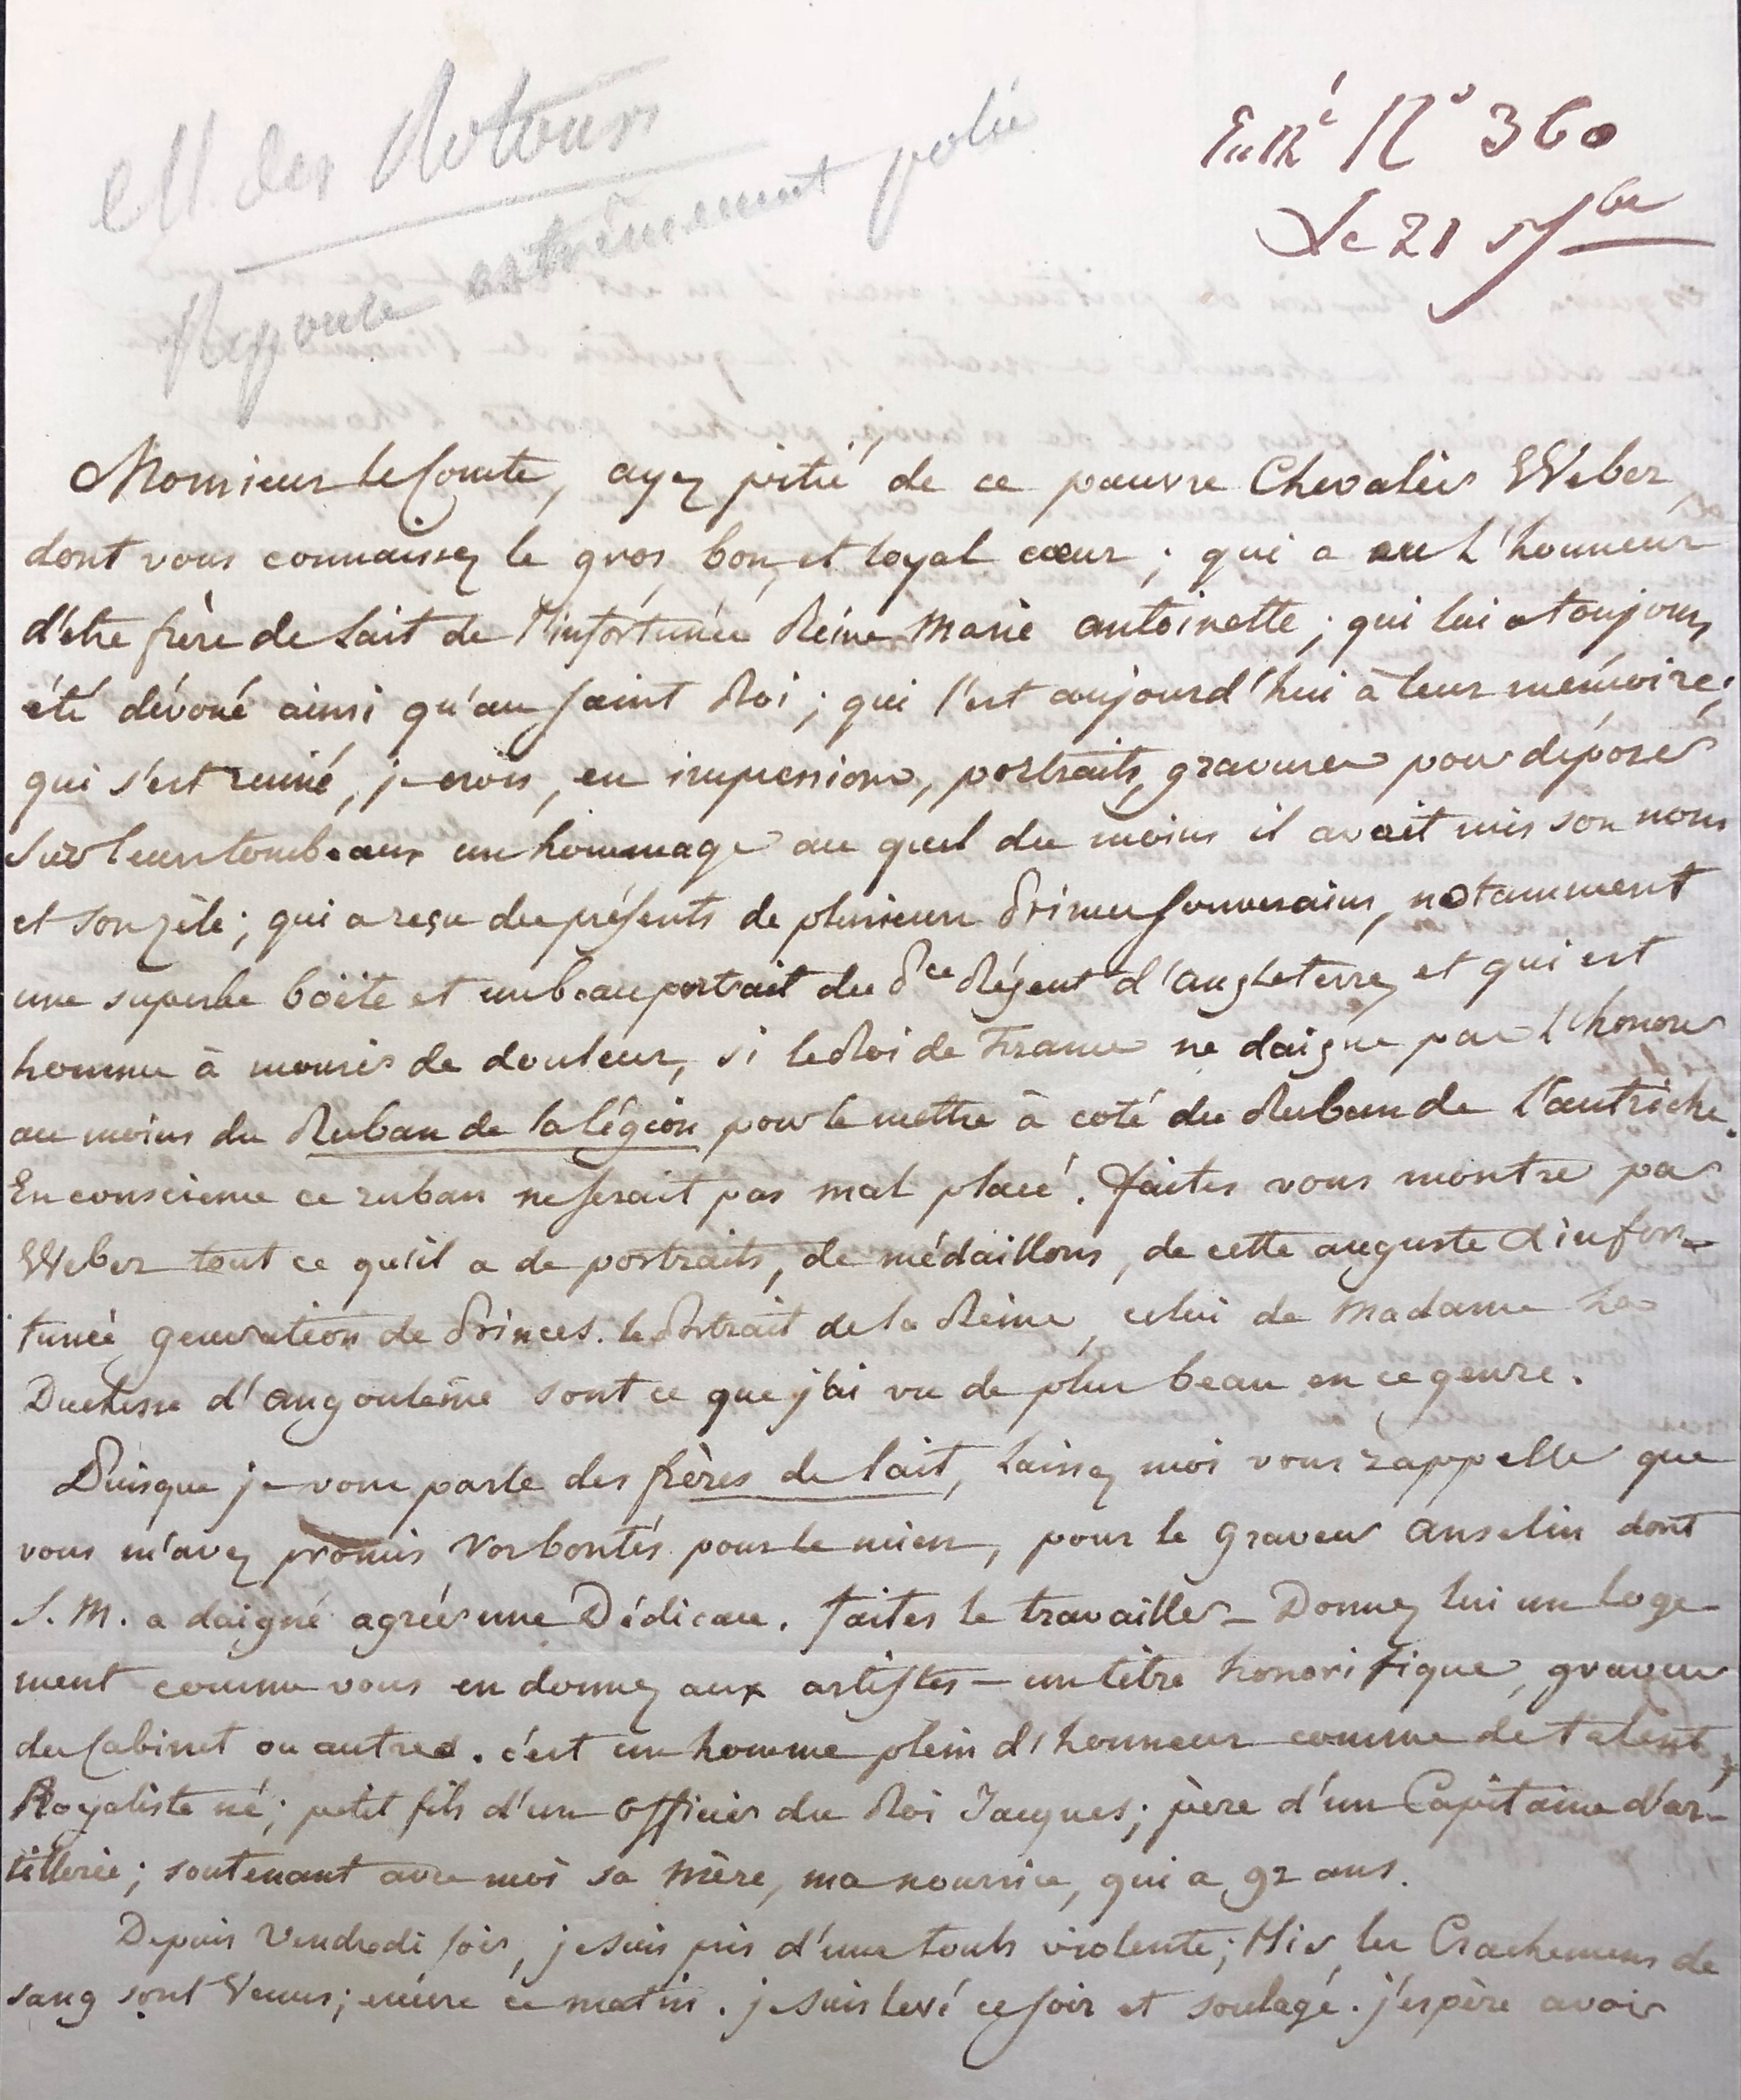 M. des Rotours
Reponse extrêmement polie
Enré N° 360
Le 21 7bre
Monsieur le Comte, ayez pitié de ce pauvre Chevalier Weber,
dont vous connaissez le gros, bon, et loyal cœur; qui a eu l'honneur
d'etre frère de lait de l'infortunée Reine Marie antoinette; qui lui a toujours
été dévoué ainsi qu'au saint Roi; qui l'est aujourd'hui à leur mémoire;
qui s'est ruiné, je crois, en impressions, portraits, gravures pour déposer
sur leurs tombeaux un hommage au quel du moins il avait mis son nom
et son zèle; qui a reçu des présents de plusieurs Princes souverains, notamment
une superbe boëte et un beau portrait du Pce Régent d'angleterre, et qui est
homme à mourir de douleur, si le Roi de France ne daigne pas l'honorer
au moins du Ruban de la légion pour le mettre à coté du Ruban de l'autriche.
En conscience ce ruban ne serait pas mal placé. faites vous montrer par
Weber tout ce qu'il a de portraits, de médaillons, de cette auguste & infor-
tunée generation de Princes. le Portrait de la Reine, celui de Madame La
Duchesse d'angoulême sont ce que j'ai vu de plus beau en ce genre.
Puisque je vous parle des frères de lait, laissez moi vous rappeller que
vous m'avez promis vos bontés pour le mien, pour le graveur anselin dont
S. M. a daigné agréer une Dédicace. faites le travailler - Donnez lui un loge-
ment comme vous en donnez aux artistes - un titre honorifique, graveur
du Cabinet ou autres. c'est un homme plein d'honneur comme de talent,
Royaliste né; petit fils d'un officier du Roi Jacques; père d'un Capitaine d'ar-
tillerie; soutenant avec moi sa mère, ma nourrice, qui a 92 ans.
Depuis Vendredi soir, je suis pris d'une toux violente; Hier, les Crachemens de
sang sont Venus; encore ce matin. je suis levé ce soir et soulagé. j'espère avoir